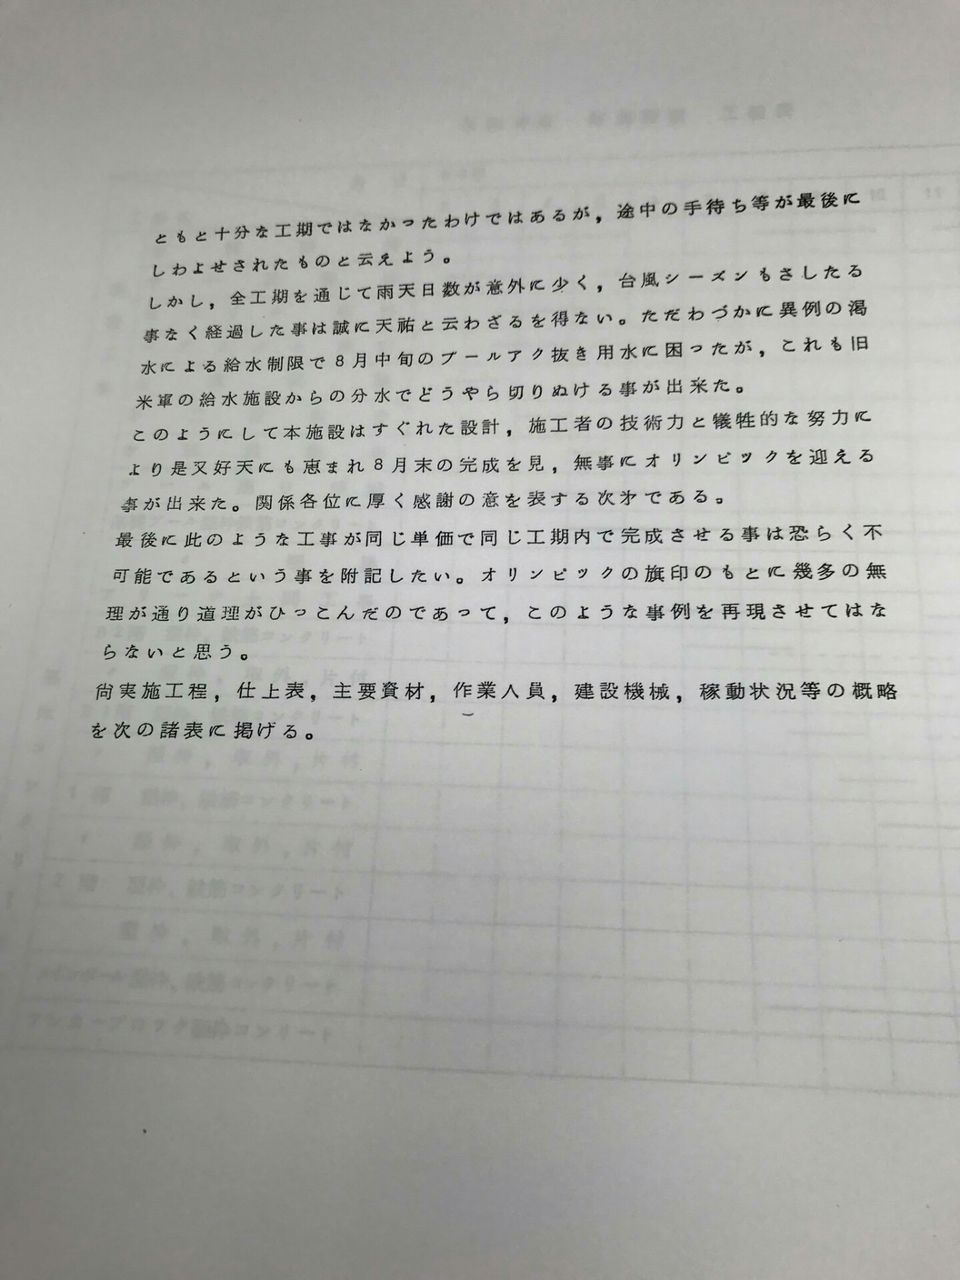 ともと十分な工期ではなかったわけではあるが，途中の手待ち等が最後に
しわよせされたものと云えよう。
しかし，全工期を通じて雨天日数が意外に少く，台風シーズンもさしたる
事なく経過した事は誠に天祐と云わざるを得ない。ただわづかに異例の渇
水による給水制限で8月中旬のプールアク抜き用水に困ったが，これも旧
米軍の給水施設からの分水でどうやら切りぬける事が出来た。
このようにして本施設はすぐれた設計，施工者の技術力と犠牲的な努力に
より是又好天にも恵まれ8月末の完成を見，無事にオリンピックを迎える
事が出来た。関係各位に厚く感謝の意を表する次才である。
最後に此のような工事が同じ単価で同じ工期内で完成させる事は恐らく不
可能であるという事を附記したい。オリンピックの旗印のもとに幾多の無
理が通り道理がひっこんだのであって，このような事例を再現させてはな
らないと思う。
尚実施工程，仕上表，主要資材，作業人員，建設機械，稼動状況等の概略
を次の諸表に掲げる。